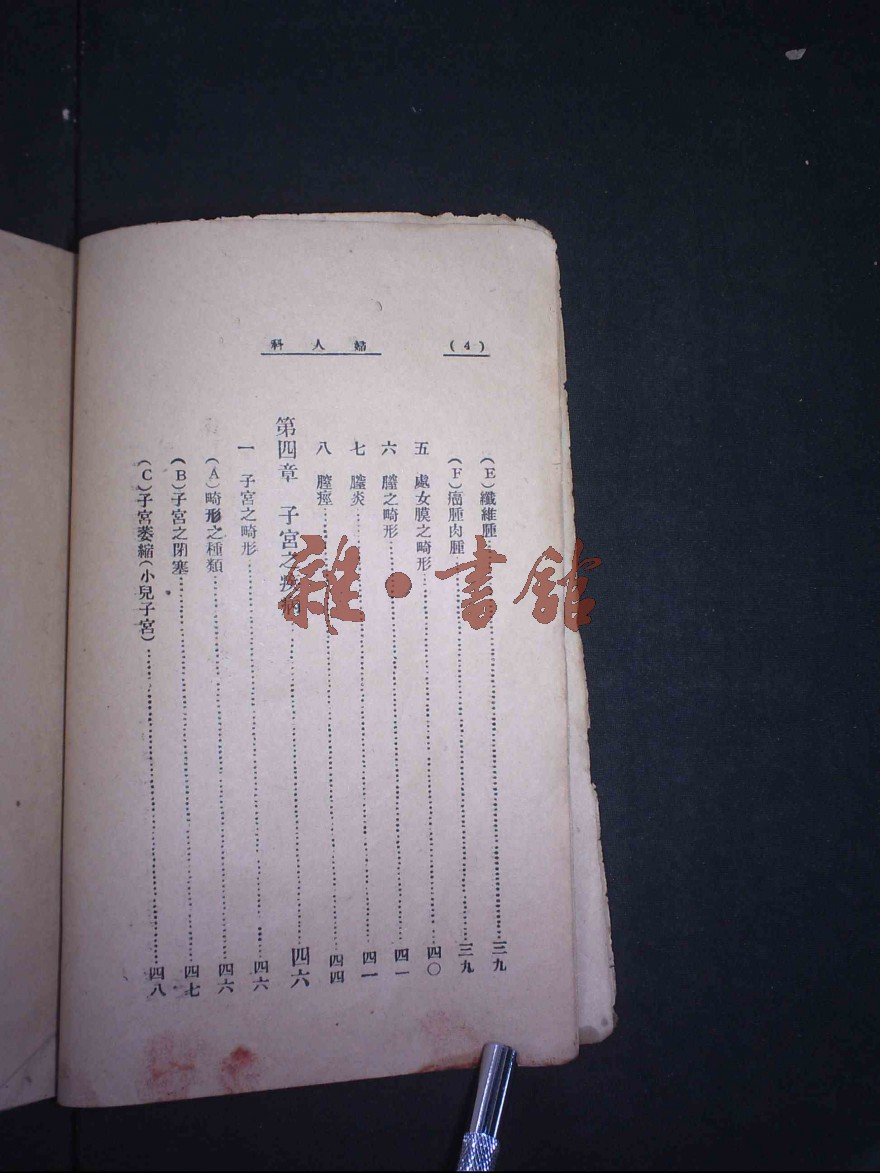 (4)
婦人科
(E)纖維腫……三九
(F)癌腫肉腫……三九
五 處女膜之畸形……四〇
六 膣之畸形……四一
七 膣炎……四一
八 膣痙……四四
第四章 子宮之疾病……四六
一 子宮之畸形……四六
(A)畸形之種類……四六
(B)子宮之閉塞……四七
(C)子宮萎縮(小兒子宮)……四八
雜·書館